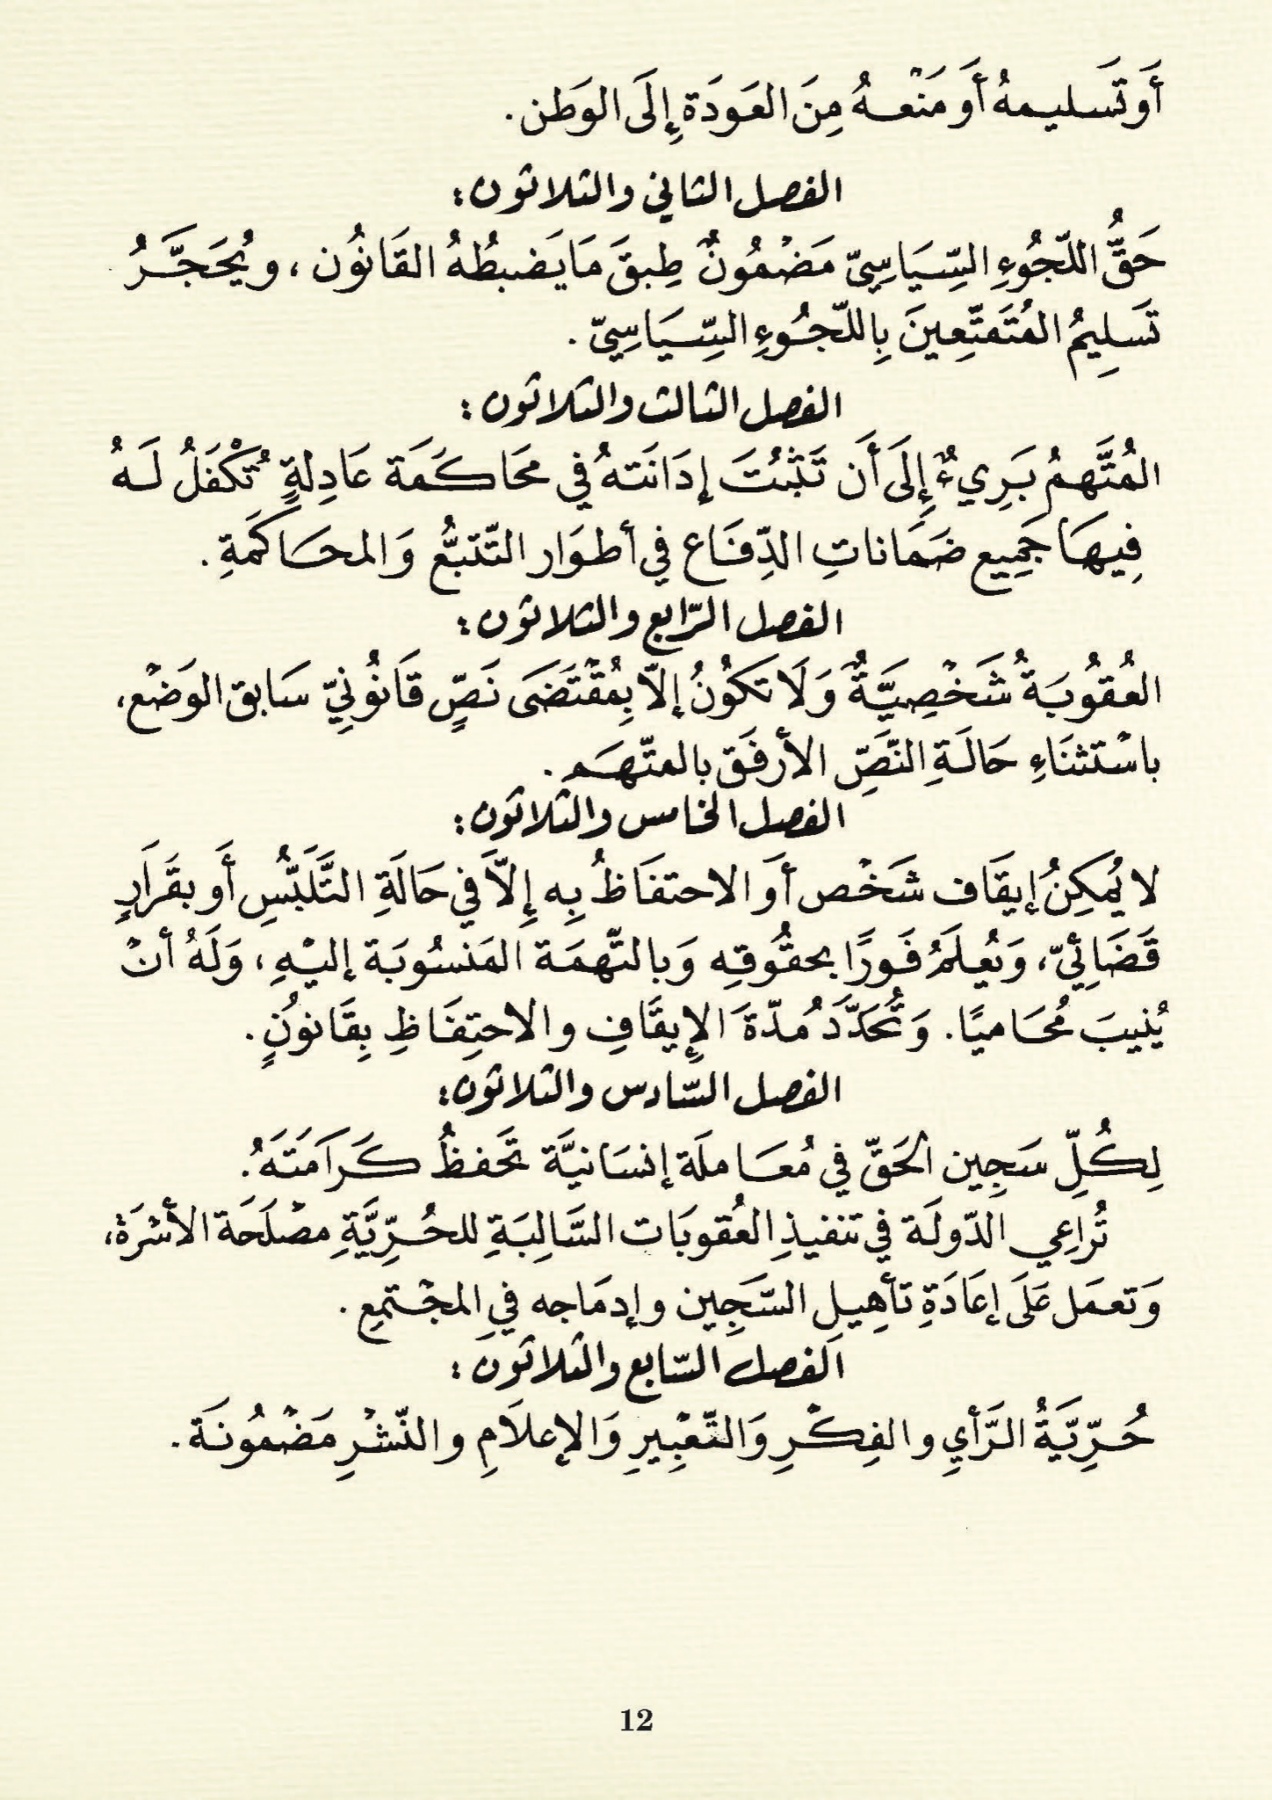 أَو تَسليمهُ أَو مَنْعهُ مِنَ العَودَة إِلَى الوَطن.
الفصل الثاني والثلاثون:
حَقُّ اللّجُوءِ السِّيَاسِيّ مَضْمُونٌ طِبقَ مَا يَضبطُهُ القَانُون، ويُحَجَّرُ
تَسلِيمُ المُتَمَتِّعِينَ بِاللّجُوءِ السِّيَاسِيّ.
الفصل الثالث والثلاثون:
المُتَّهمُ بَرِيءٌ إِلَى أَن تَثْبُتَ إدَانَتهُ في محَاكَمَة عَادِلةٍ تُكْفَلُ لَهُ
فِيهَا جَمِيع ضَمَاناتِ الدِّفَاع في أطوَار التّتبُّع وَالمحَاكَمَةِ.
الفصل الرّابع والثلاثون:
العُقُوبَةُ شَخْصِيَّةٌ وَلَا تَكُونُ إلاّ بِمُقْتَضَى نَصٍّ قَانُونِيّ سَابق الوَضْع،
باسْتثنَاءِ حَالَةِ النَّصِّ الأرفَق بالمتّهَم.
الفصل الخامس والثلاثون:
لا يُمكِنُ إيقَاف شَخْص أَو الاحتفَاظُ بِه إِلاَّ في حَالَةِ التَّلَبُّسِ أَو بقَرَارٍ
قَضَائِيّ، وَيُعلَمُ فَورًا بحقُوقِه وَبالتّهمَة المَنسُوبَة إليْهِ، وَلَهُ أنْ
يُنيبَ مُحَاميًا. وَتُحَدَّدَ مُدّةَ الإيقَافِ والاحتِفَاظِ بِقَانونٍ.
الفصل السّادس والثلاثون:
لِكُلِّ سَجِين الحَقّ في مُعَاملَة إنسَانيَّة تحَفظُ كَرَامَتَهُ.
تُراعِي الدّولَة في تنفيذِ العُقوبَات السَّالِبَةِ للحُرِّيَّةِ مصْلَحَة الأسْرَةْ،
وَتعمَل عَلَى إعَادَةِ تأهِيلِ السَّجِين وإدمَاجه في المجْتمِع.
الفصل السّابع والثلاثونَ:
حُرِّيَّةُ الرَّأيِ والفِكْرِ وَالتَّعْبِيرِ وَالإعلاَمِ والنّشْرِ مَضْمُونَة.
12